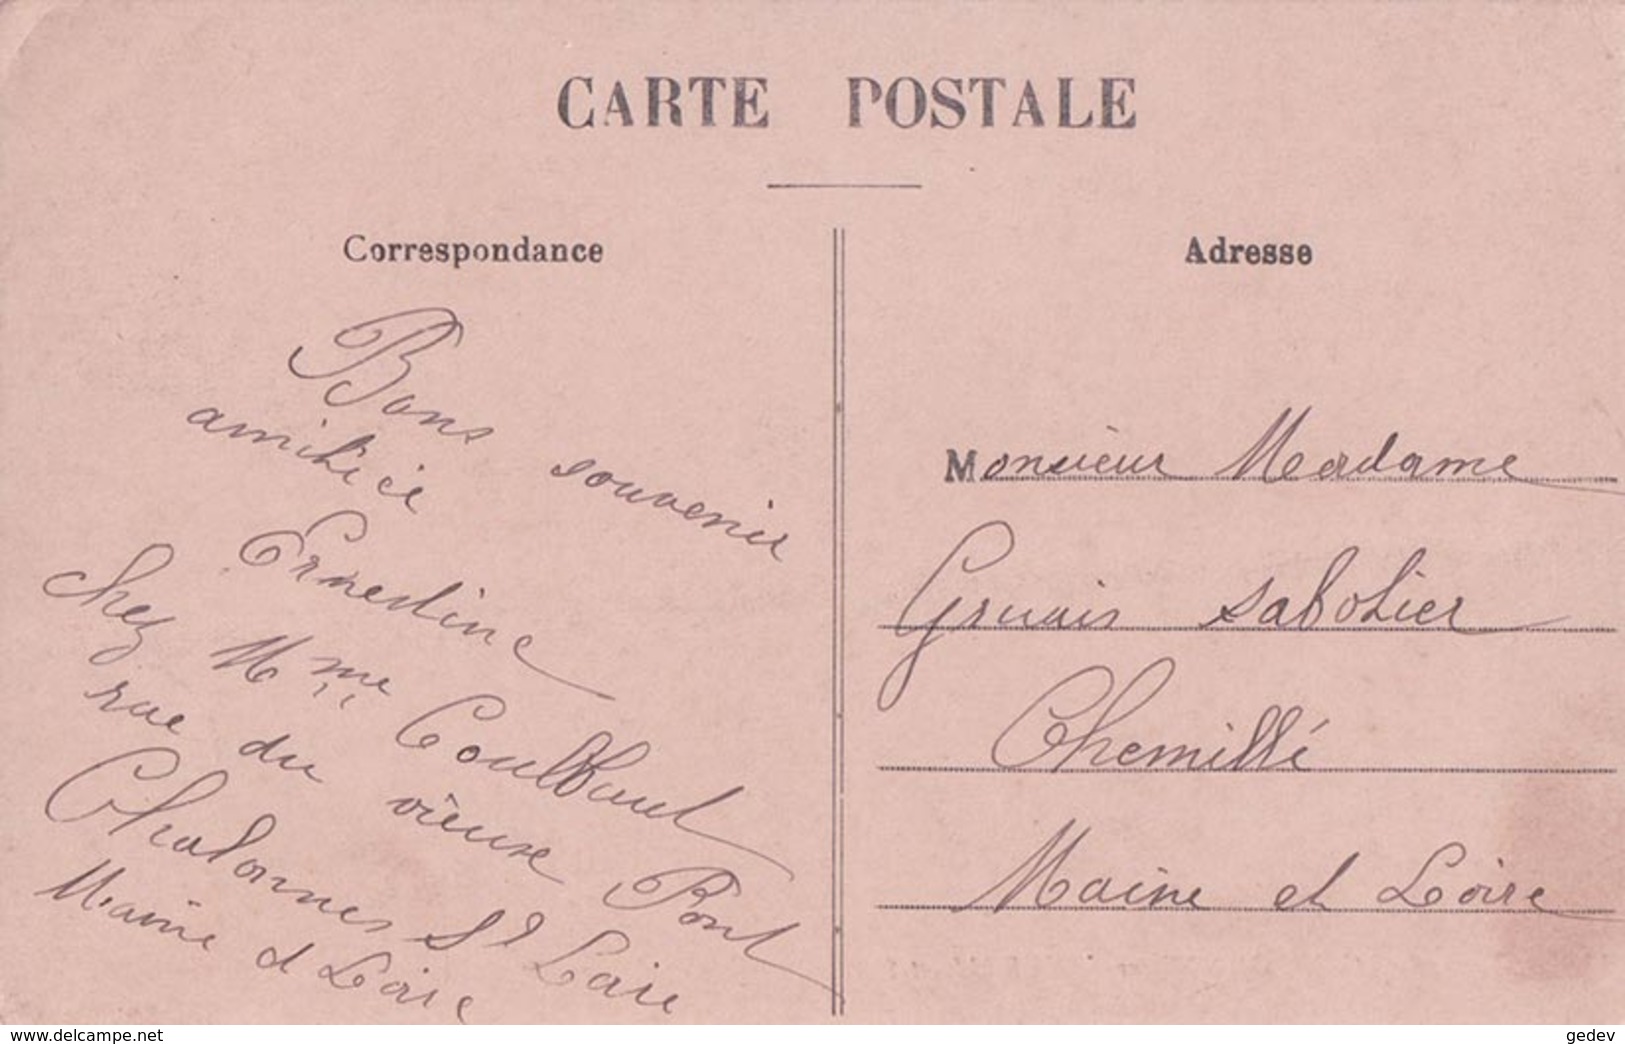 CARTE POSTALE
Correspondance
Bons souvenir
amitiéé
Ernestine
Chez Mme Coulbaut
rue du vieux Pont
Chalonnes St Loire
Maine et Loire
Adresse
Monsieur Madame
Gruais sabotier
Chemillé
Maine et Loire
www.delcampe.net
gedev